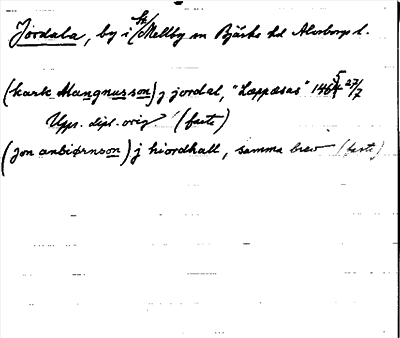 Jordala, by i St. Mellby sn Bjärke hd Älvsborgs l.
(kark Mangnusson) j jordal, "Læppæsas" 1465 27/7
Upps. dipl. orig (faste)
(jon anbiørnson) j hiordhall, samma brev (faste)